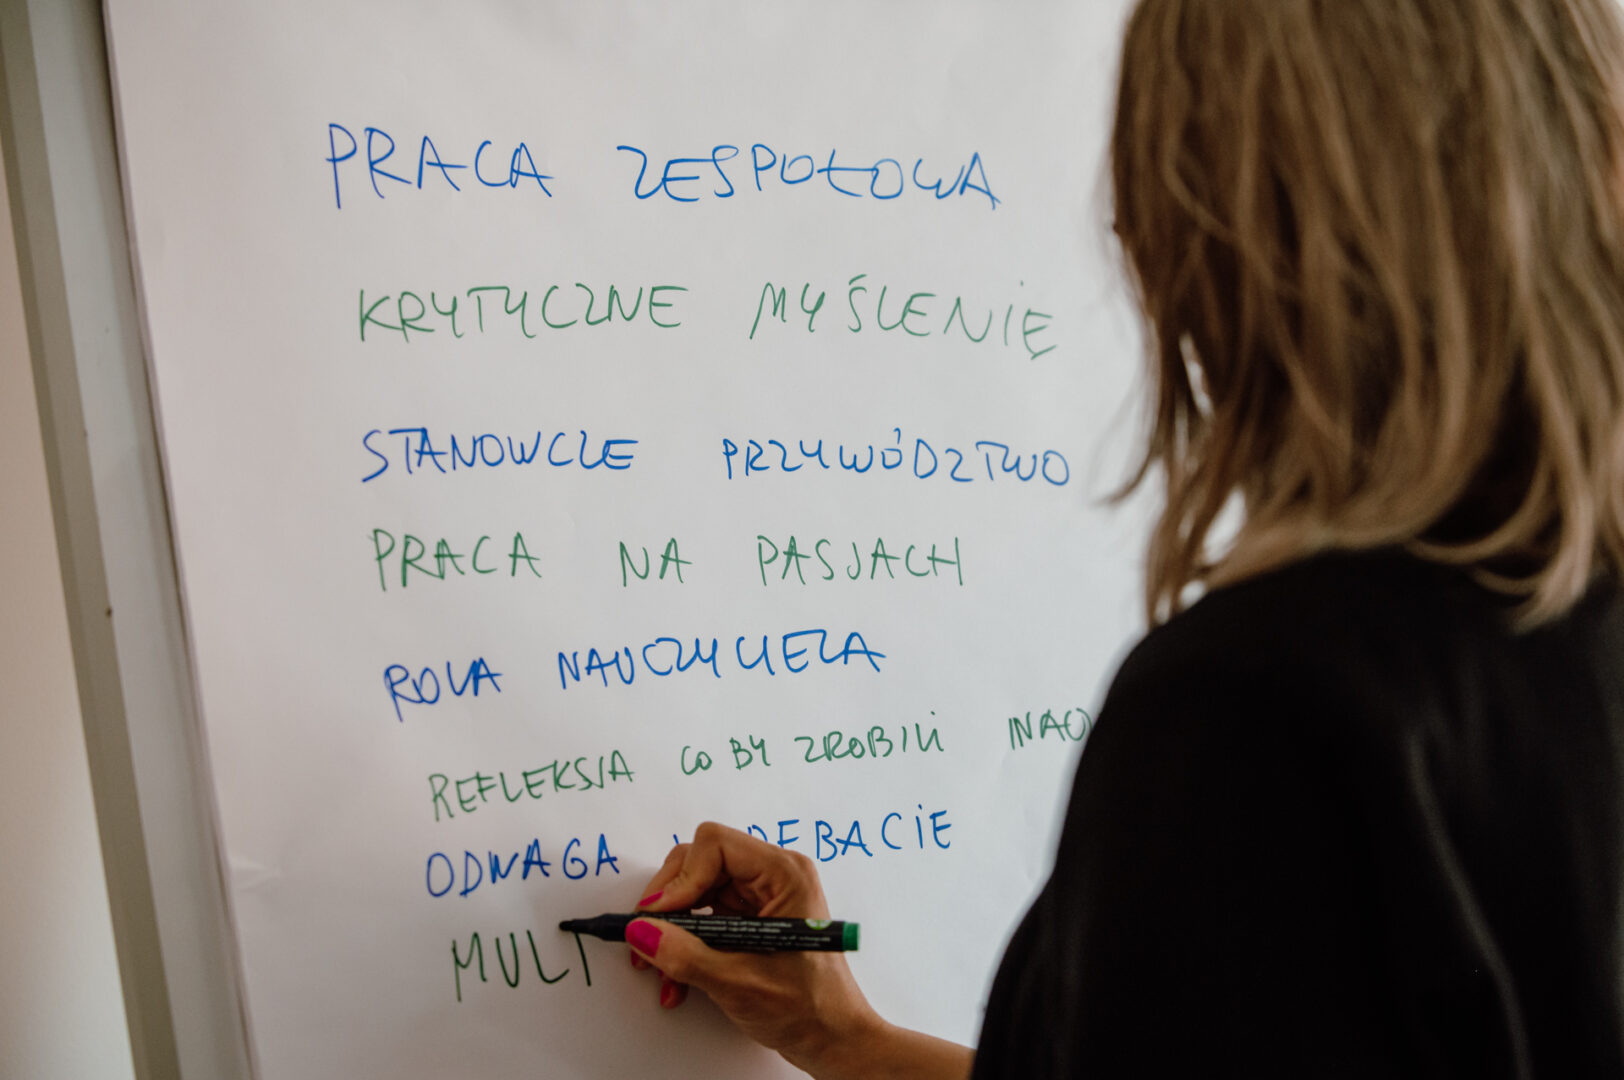 PRACA ZESPOŁOWA
KRYTYCZNE MYŚLENIE
STANOWCZE PRZYWÓDZTWO
PRACA NA PASJACH
ROLA NAUCZYCIELA
REFLEKSJA CO BY ZROBILI
ODWAGA
MULT